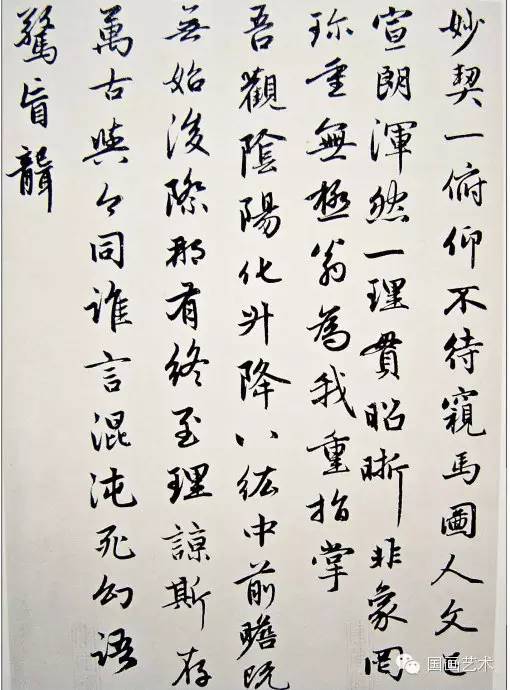 妙契一俯仰不待窺馬圖人文已
宣朗渾然一理貫昭晰非象罔
珎重無極翁為我重指掌
吾觀陰陽化升降八紘中前瞻既
無始後際那有終至理諒斯存
萬古與今同誰言混沌死幻語
驚盲聾
国画艺术